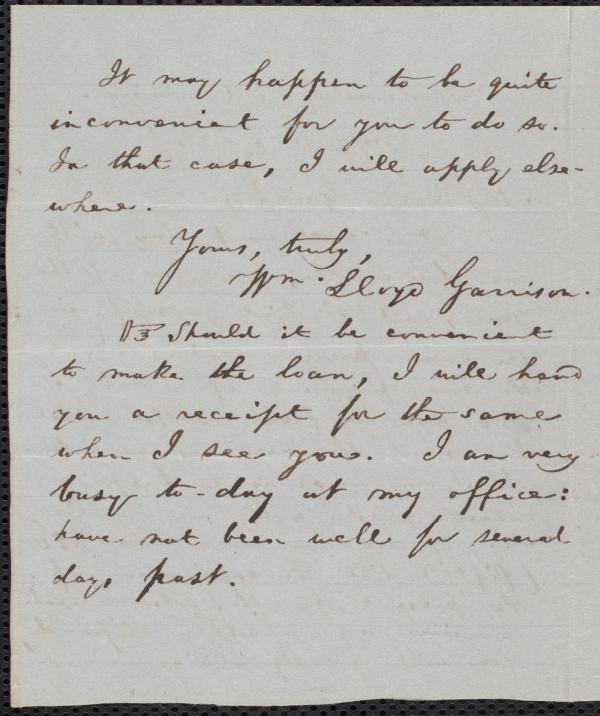 It may happen to be quite
inconvenient for you to do so.
In that case, I will apply else-
where.
Yours, truly,
Wm. Lloyd Garrison.
☞ Should it be convenient
to make the loan, I will hand
you a receipt for the same
when I see you. I am very
busy to-day at my office:
have not been well for several
days past.